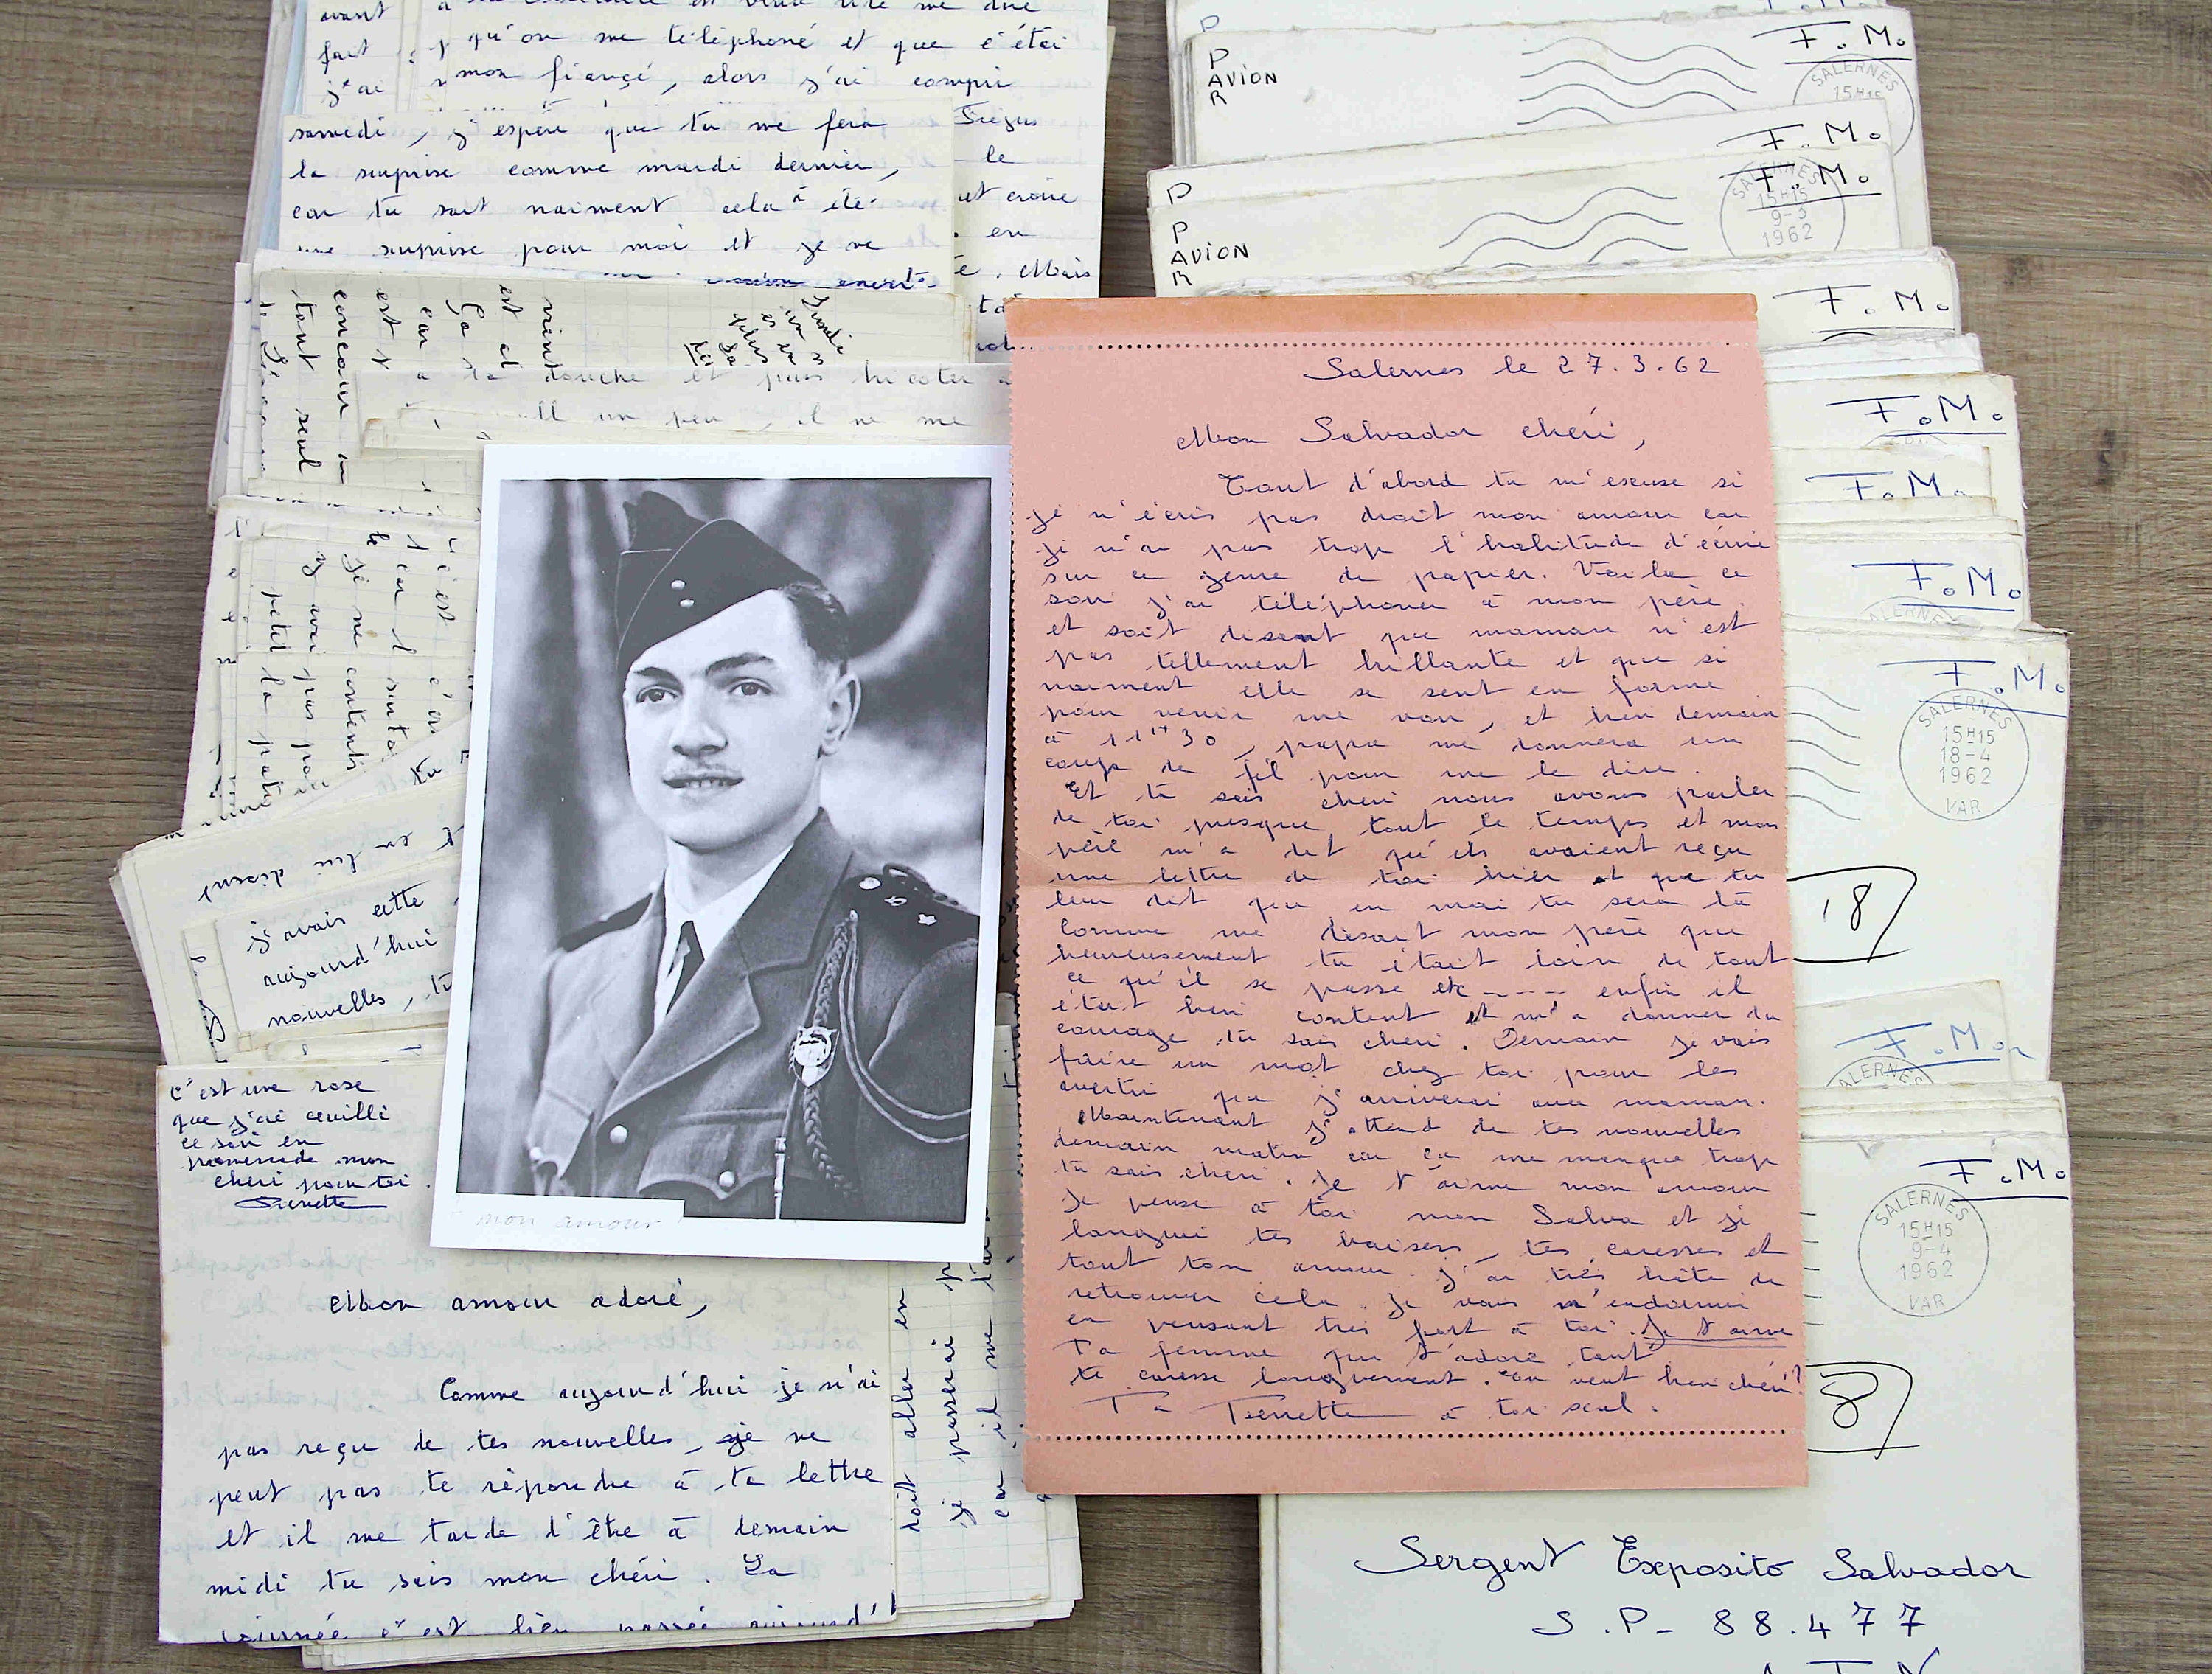 avant
fait
j'ai
qu'on me téléphoné et que c'étai
mon fiançé, alors j'ai compri
samedi, j'espère que tu me fera
la surprise comme mardi dernier,
car tu sait vraiment cela a été
une surprise pour moi et je ne
Fréjus
le
et croire
en
Mais
concour
tout seul
est
car
Ça
vient
lundi
a la douche et puis tricoter
un peu, il ne me
c'est
car
je ne
contents
j'avai pas
petit la
on lui disent
j'avais cette
aujourd'hui
nouvelles, tu
C'est une rose
que j'ai ceuilli
ce soir en
promenade mon
chéri pour toi.
Pierrette
mon amour
Mon amour adoré,
Comme aujourd'hui je n'ai
pas reçu de tes nouvelles, je ne
peut pas te répondre à ta lettre
et il me tarde d'être à demain
midi tu sais mon chéri. La
journée c'est bien passée aujourd'
doit aller en
je passerai
car il me
Salernes le 27.3.62
Mon Salvador chéri,
Tout d'abord tu m'escuse si
je n'écris pas droit mon amour car
je n'ai pas trop l'habitude d'écrire
sur ce genre de papier. Voila ce
soir j'ai téléphoner à mon père
et soit disant que maman n'est
pas tellement brillante et que si
vraiment elle se sent en forme
pour venir me voir, et bien demain
à 11H30, papa me donnera un
coup de fil pour me le dire.
Et tu sais chéri nous avons parler
de toi presque tout le temps et mon
père m'a dit qu'ils avaient reçu
une lettre de toi hier et que tu
leur dit que en mai tu sera là
Comme me disait mon père que
heureusement tu était loin de tout
ce qu'il se passe etc ---- enfin il
était bien content et m'a donner du
courage tu sais chéri. Demain je vais
faire un mot chez toi pour les
avertir que j'arriverai avec maman.
Maintenant j'attend de tes nouvelles
demain matin car ça me manque trop
tu sais chéri. Je t'aime mon amour
je pense à toi mon Salva et je
langui tes baisers, tes caresses et
tout ton amour. J'ai très hâte de
retrouver cela. Je vais m'endormir
en pensant très fort à toi. Je t'aime
Ta femme que t'adore tant
te caresse longuement. Tu veut bien chéri?
Ta Pierrette à toi seul.
P
P
AVION
R
F.M.
SALERNES
15H15
F.M.
P
P
AVION
R
F.M.
SALERNES
15H15
9-3
1962
F.M.
F.M.
F.M.
F.M.
SALERNES
F.M.
SALERNES
15H15
18-4
1962
VAR
18
F.M.
SALERNES
F.M.
SALERNES
15H15
9-4
1962
VAR
8
Sergent Exposito Salvador
S.P- 88.477